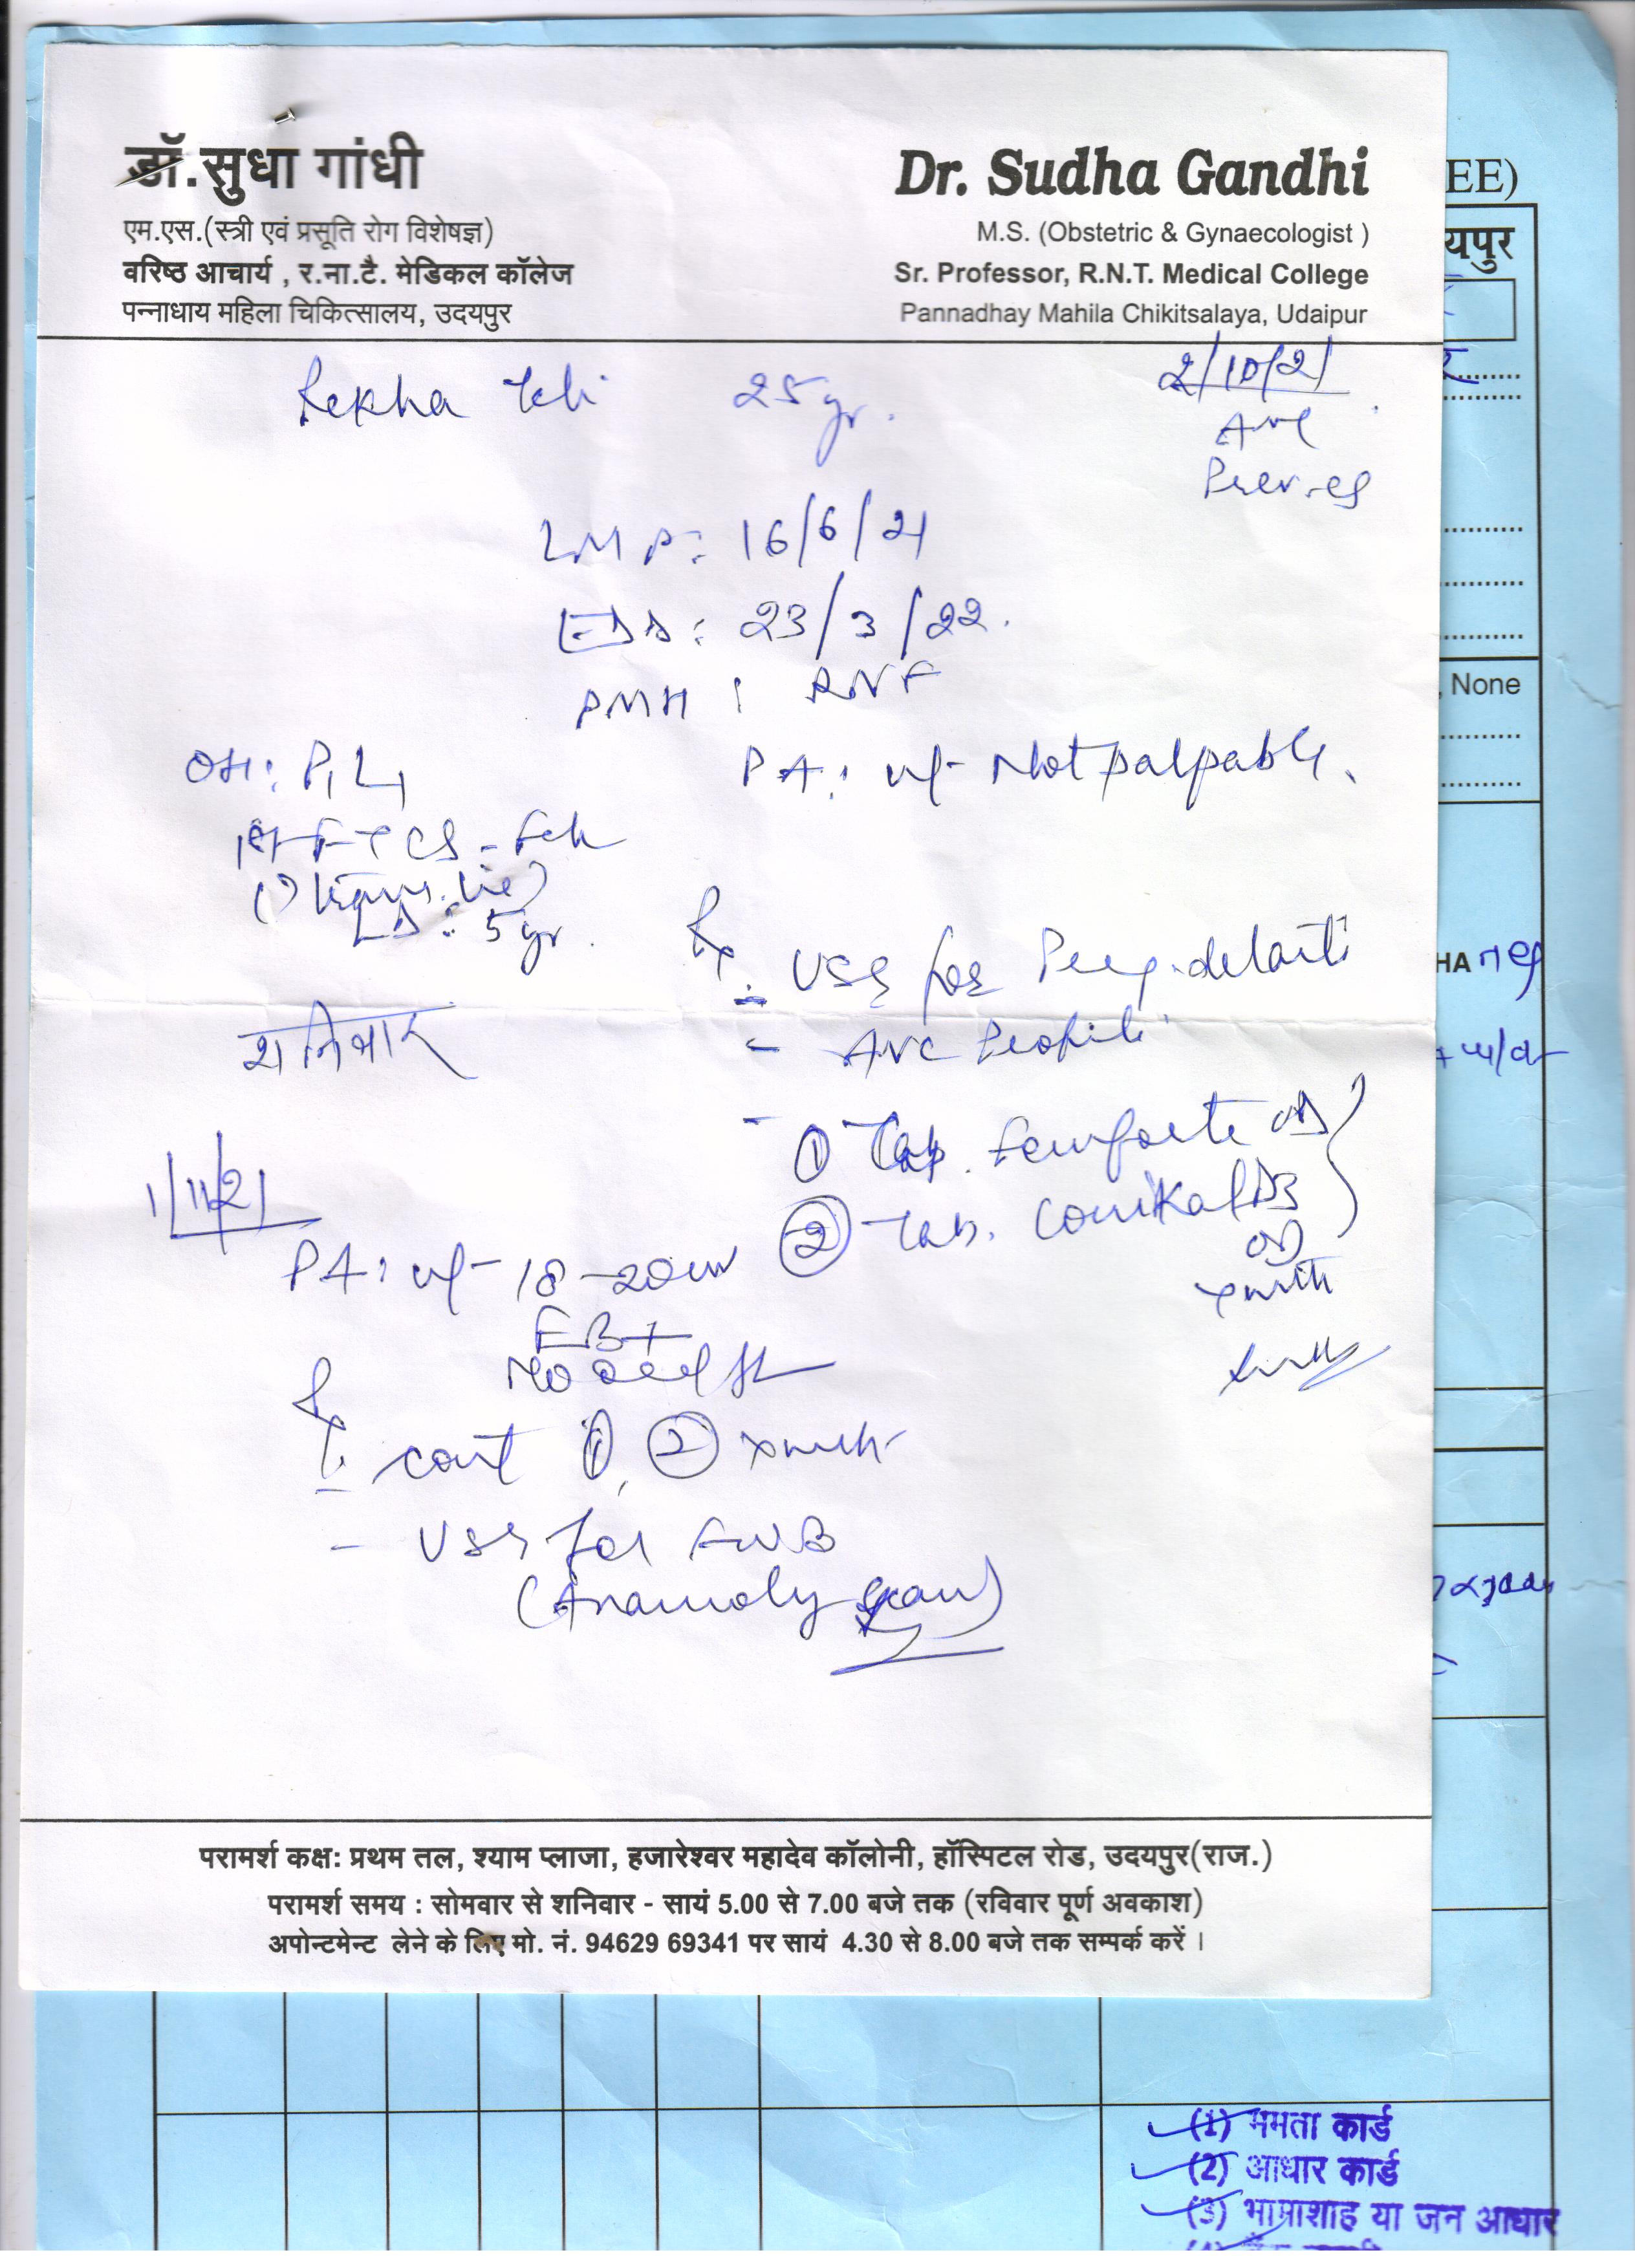 डॉ. सुधा गांधी
एम.एस.(स्त्री एवं प्रसूति रोग विशेषज्ञ)
वरिष्ठ आचार्य , र.ना.टै. मेडिकल कॉलेज
पन्नाधाय महिला चिकित्सालय, उदयपुर
Dr. Sudha Gandhi
M.S. (Obstetric & Gynaecologist )
Sr. Professor, R.N.T. Medical College
Pannadhay Mahila Chikitsalaya, Udaipur
EE)
यपुर
2/10/21
Rekha 25 yr.
LMP: 16/6/21
EDD: 23/3/22.
PMH :
, None
OH: P1L1
PA: ut- Not palpable.
1st FTCS - Fch
LD: 5 yr.
Rx
- USG for
HA neg
शनिवार
- ANC Profile
① Tab. OD
② Tab. D3
OD
x mth
1/11/21
PA: ut- 18-20 wk
FB+
No
Rx
- cont ①, ② x mth
- USG for FWB
(Anamoly Scan)
परामर्श कक्ष: प्रथम तल, श्याम प्लाजा, हजारेश्वर महादेव कॉलोनी, हॉस्पिटल रोड, उदयपुर(राज.)
परामर्श समय : सोमवार से शनिवार - सायं 5.00 से 7.00 बजे तक (रविवार पूर्ण अवकाश)
अपोन्टमेन्ट लेने के लिए मो. नं. 94629 69341 पर सायं 4.30 से 8.00 बजे तक सम्पर्क करें ।
(1) ममता कार्ड
(2) आधार कार्ड
(3) भामाशाह या जन आधार